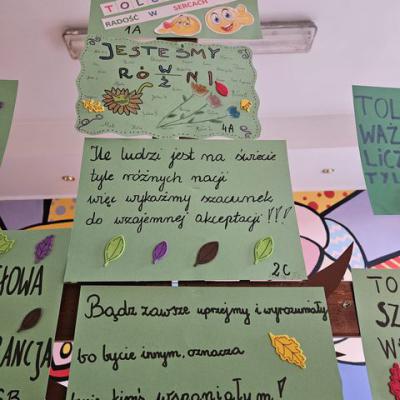 TOL
RADOŚĆ W SERCACH
1A
JESTEŚMY
RÓWNI
RÓŻNI
4A
Ile ludzi jest na świecie
tyle różnych nacji
więc wykażmy szacunek
do wzajemnej akceptacji!!!
2C
TOL
WAŻ
LICZ
TYL
SŁOWA
RANCJA
Bądź zawsze uprzejmy i wyrozumiały
bo bycie innym, oznacza
bycie kimś wspaniałym!
TO
SZ